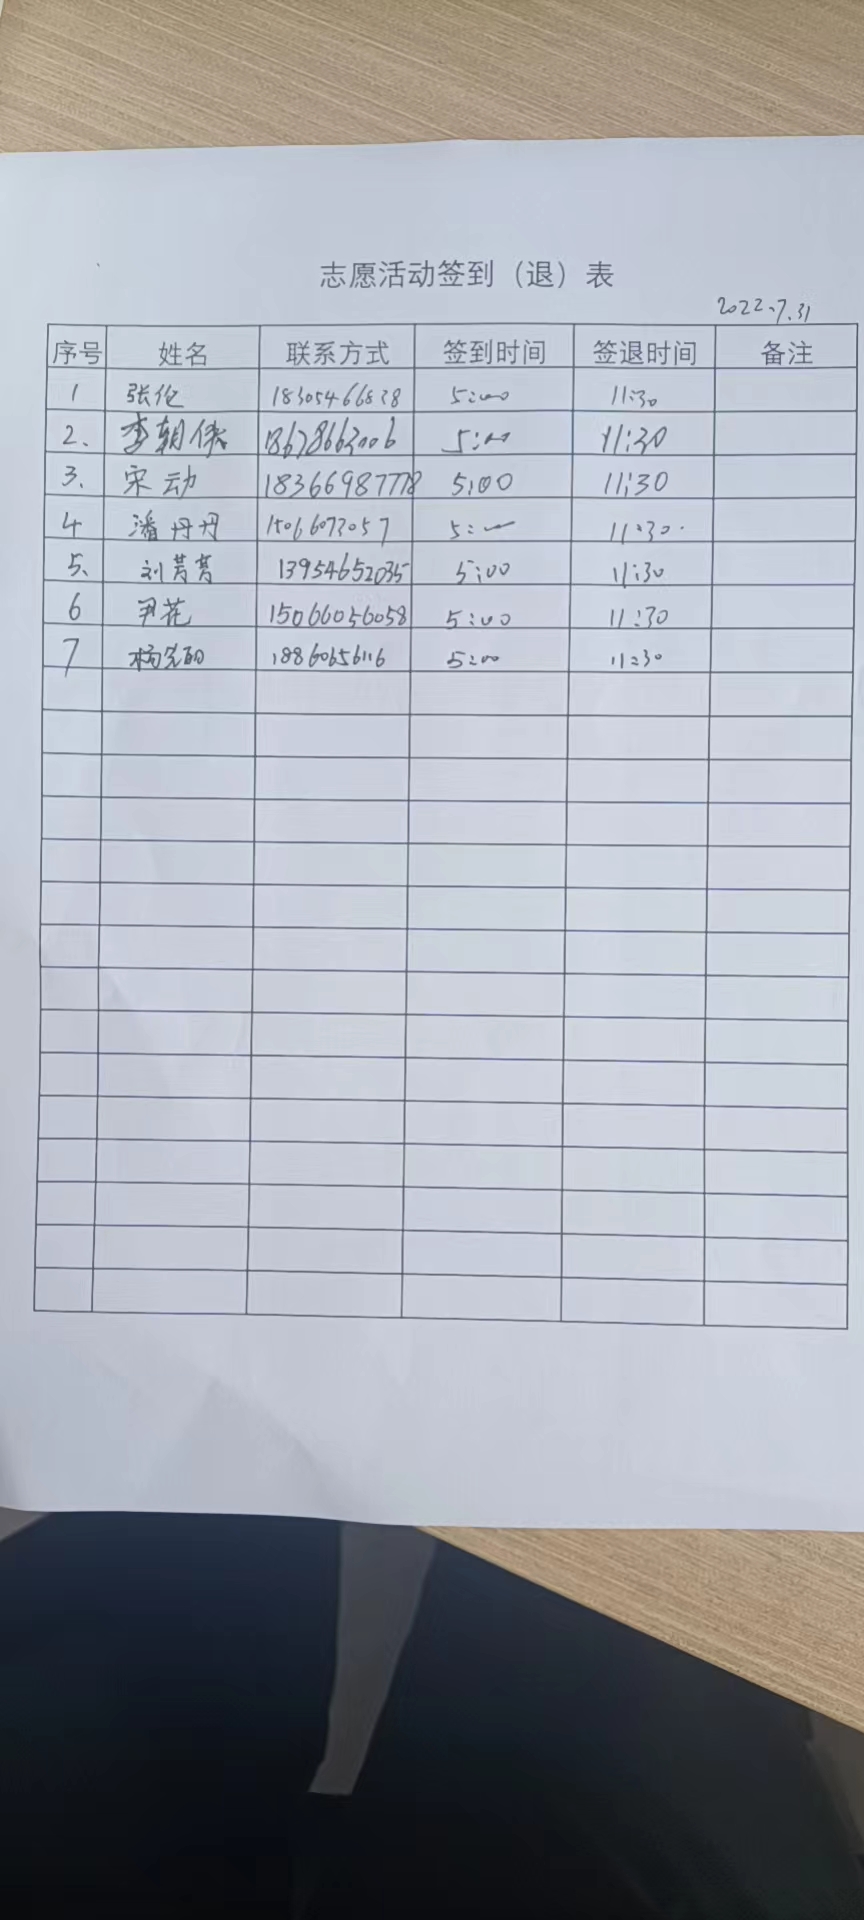 志愿活动签到（退）表
2022.7.31
序号 姓名 联系方式 签到时间 签退时间 备注
1 张伦 18305466828 5:00 11:30
2、 李朝侠 18678663006 5:00 11:30
3、 宋动 18366987778 5:00 11:30
4 潘丹丹 15066073057 5:00 11:30.
5、 刘菁菁 13954652035 5:00 11:30
6 尹花 15066056058 5:00 11:30
7 18860656116 5:00 11:30